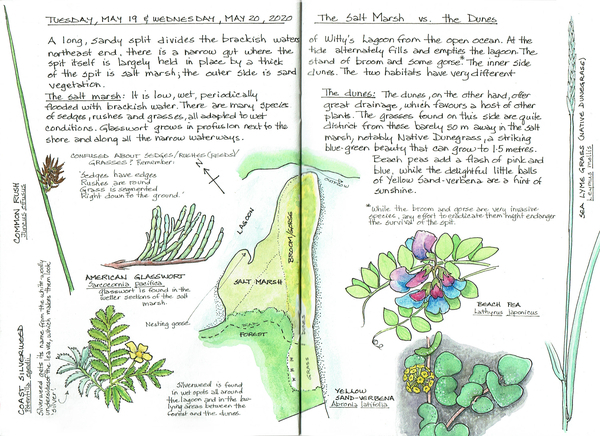 TUESDAY, MAY 19 & WEDNESDAY, MAY 20, 2020
The Salt Marsh vs. the Dunes
A long, sandy split divides the brackish waters
northeast end, there is a narrow gut where the
spit itself is largely held in place by a thick
of the spit is salt marsh; the outer side is sand
vegetation.
The salt marsh: It is low, wet, periodically
flooded with brackish water. There are many species
of sedges, rushes and grasses, all adapted to wet
conditions. Glasswort grows in profusion next to the
shore and along all the narrow waterways.
of Witty's Lagoon from the open ocean. At the
tide alternately fills and empties the lagoon. The
stand of broom and some gorse.* The inner side
dunes. The two habitats have very different
The dunes: The dunes, on the other hand, offer
great drainage, which favours a host of other
plants. The grasses found on this side are quite
distinct from those barely 50 m away in the salt
marsh, notably Native Dunegrass, a striking
blue-green beauty that can grow to 1.5 metres.
Beach peas add a flash of pink and
blue, while the delightful little balls
of Yellow Sand-verbena are a hint of
sunshine.
*While the broom and gorse are very invasive
species, any effort to eradicate them might endanger
the survival of the spit.
CONFUSED ABOUT SEDGES/RUSHES (REEDS)/
GRASSES? Remember:
'Sedges have edges
Rushes are round
Grass is segmented
Right down to the ground.'
COMMON RUSH
Juncus effusus
N
LAGOON
BROOM/GORSE
SALT MARSH
FOREST
GRASS
AMERICAN GLASSWORT
Sarcocornia pacifica
Glasswort is found in the
wetter sections of the salt
marsh.
Nesting geese.
COAST SILVERWEED
Silverweed gets its name from the white-wooly
undersides of the leaves, which makes them look
'silver'.
Silverweed is found
in wet spots all around
the lagoon and in the low
lying areas between the
forest and the dunes.
BEACH PEA
Lathyrus japonicus
YELLOW
SAND-VERBENA
Abronia latifolia
SEA LYME GRASS (NATIVE DUNEGRASS)
Leymus mollis